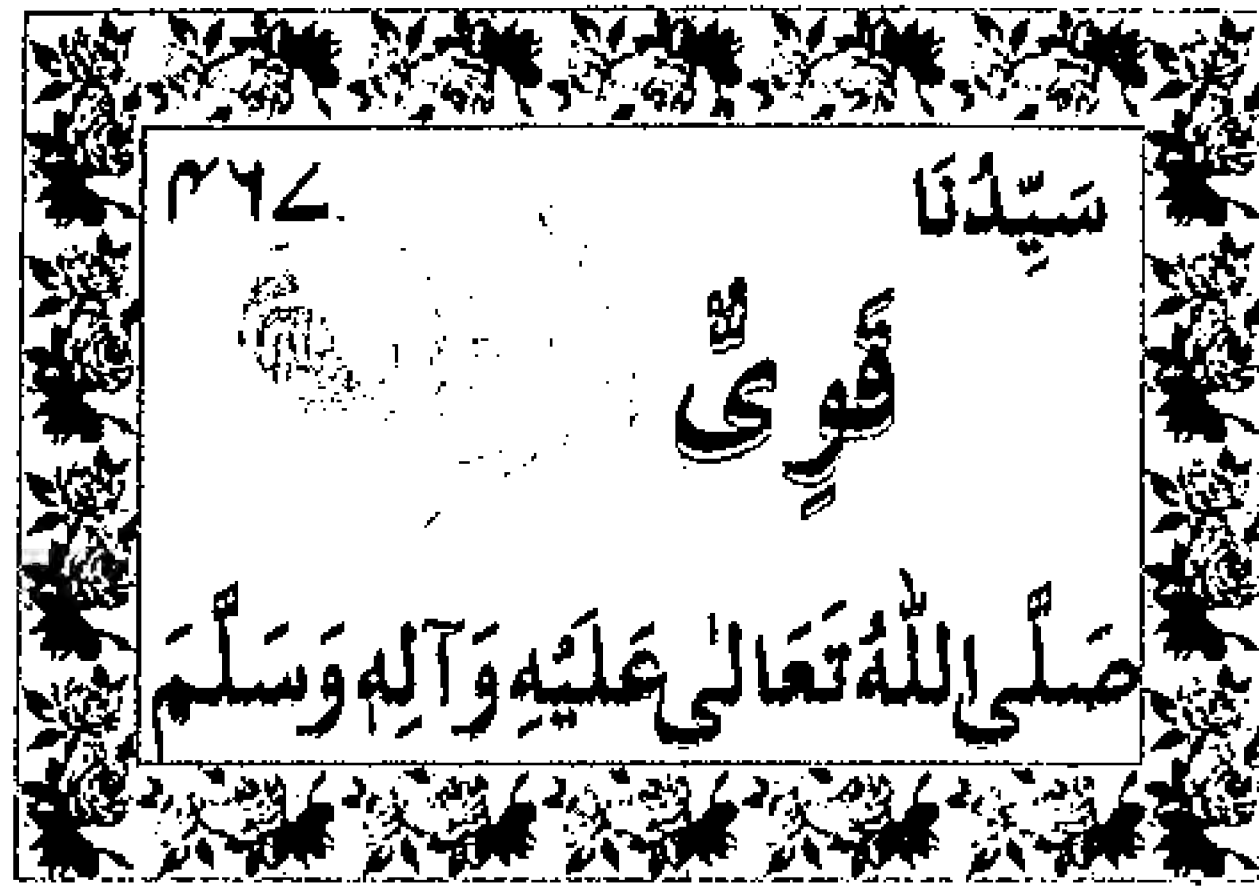 سَيِّدُنَا ۴۶۷
قَوِیٌّ
صَلَّی اللّٰهُ تَعَالٰی عَلَیْهِ وَآلِهٖ وَسَلَّمَ